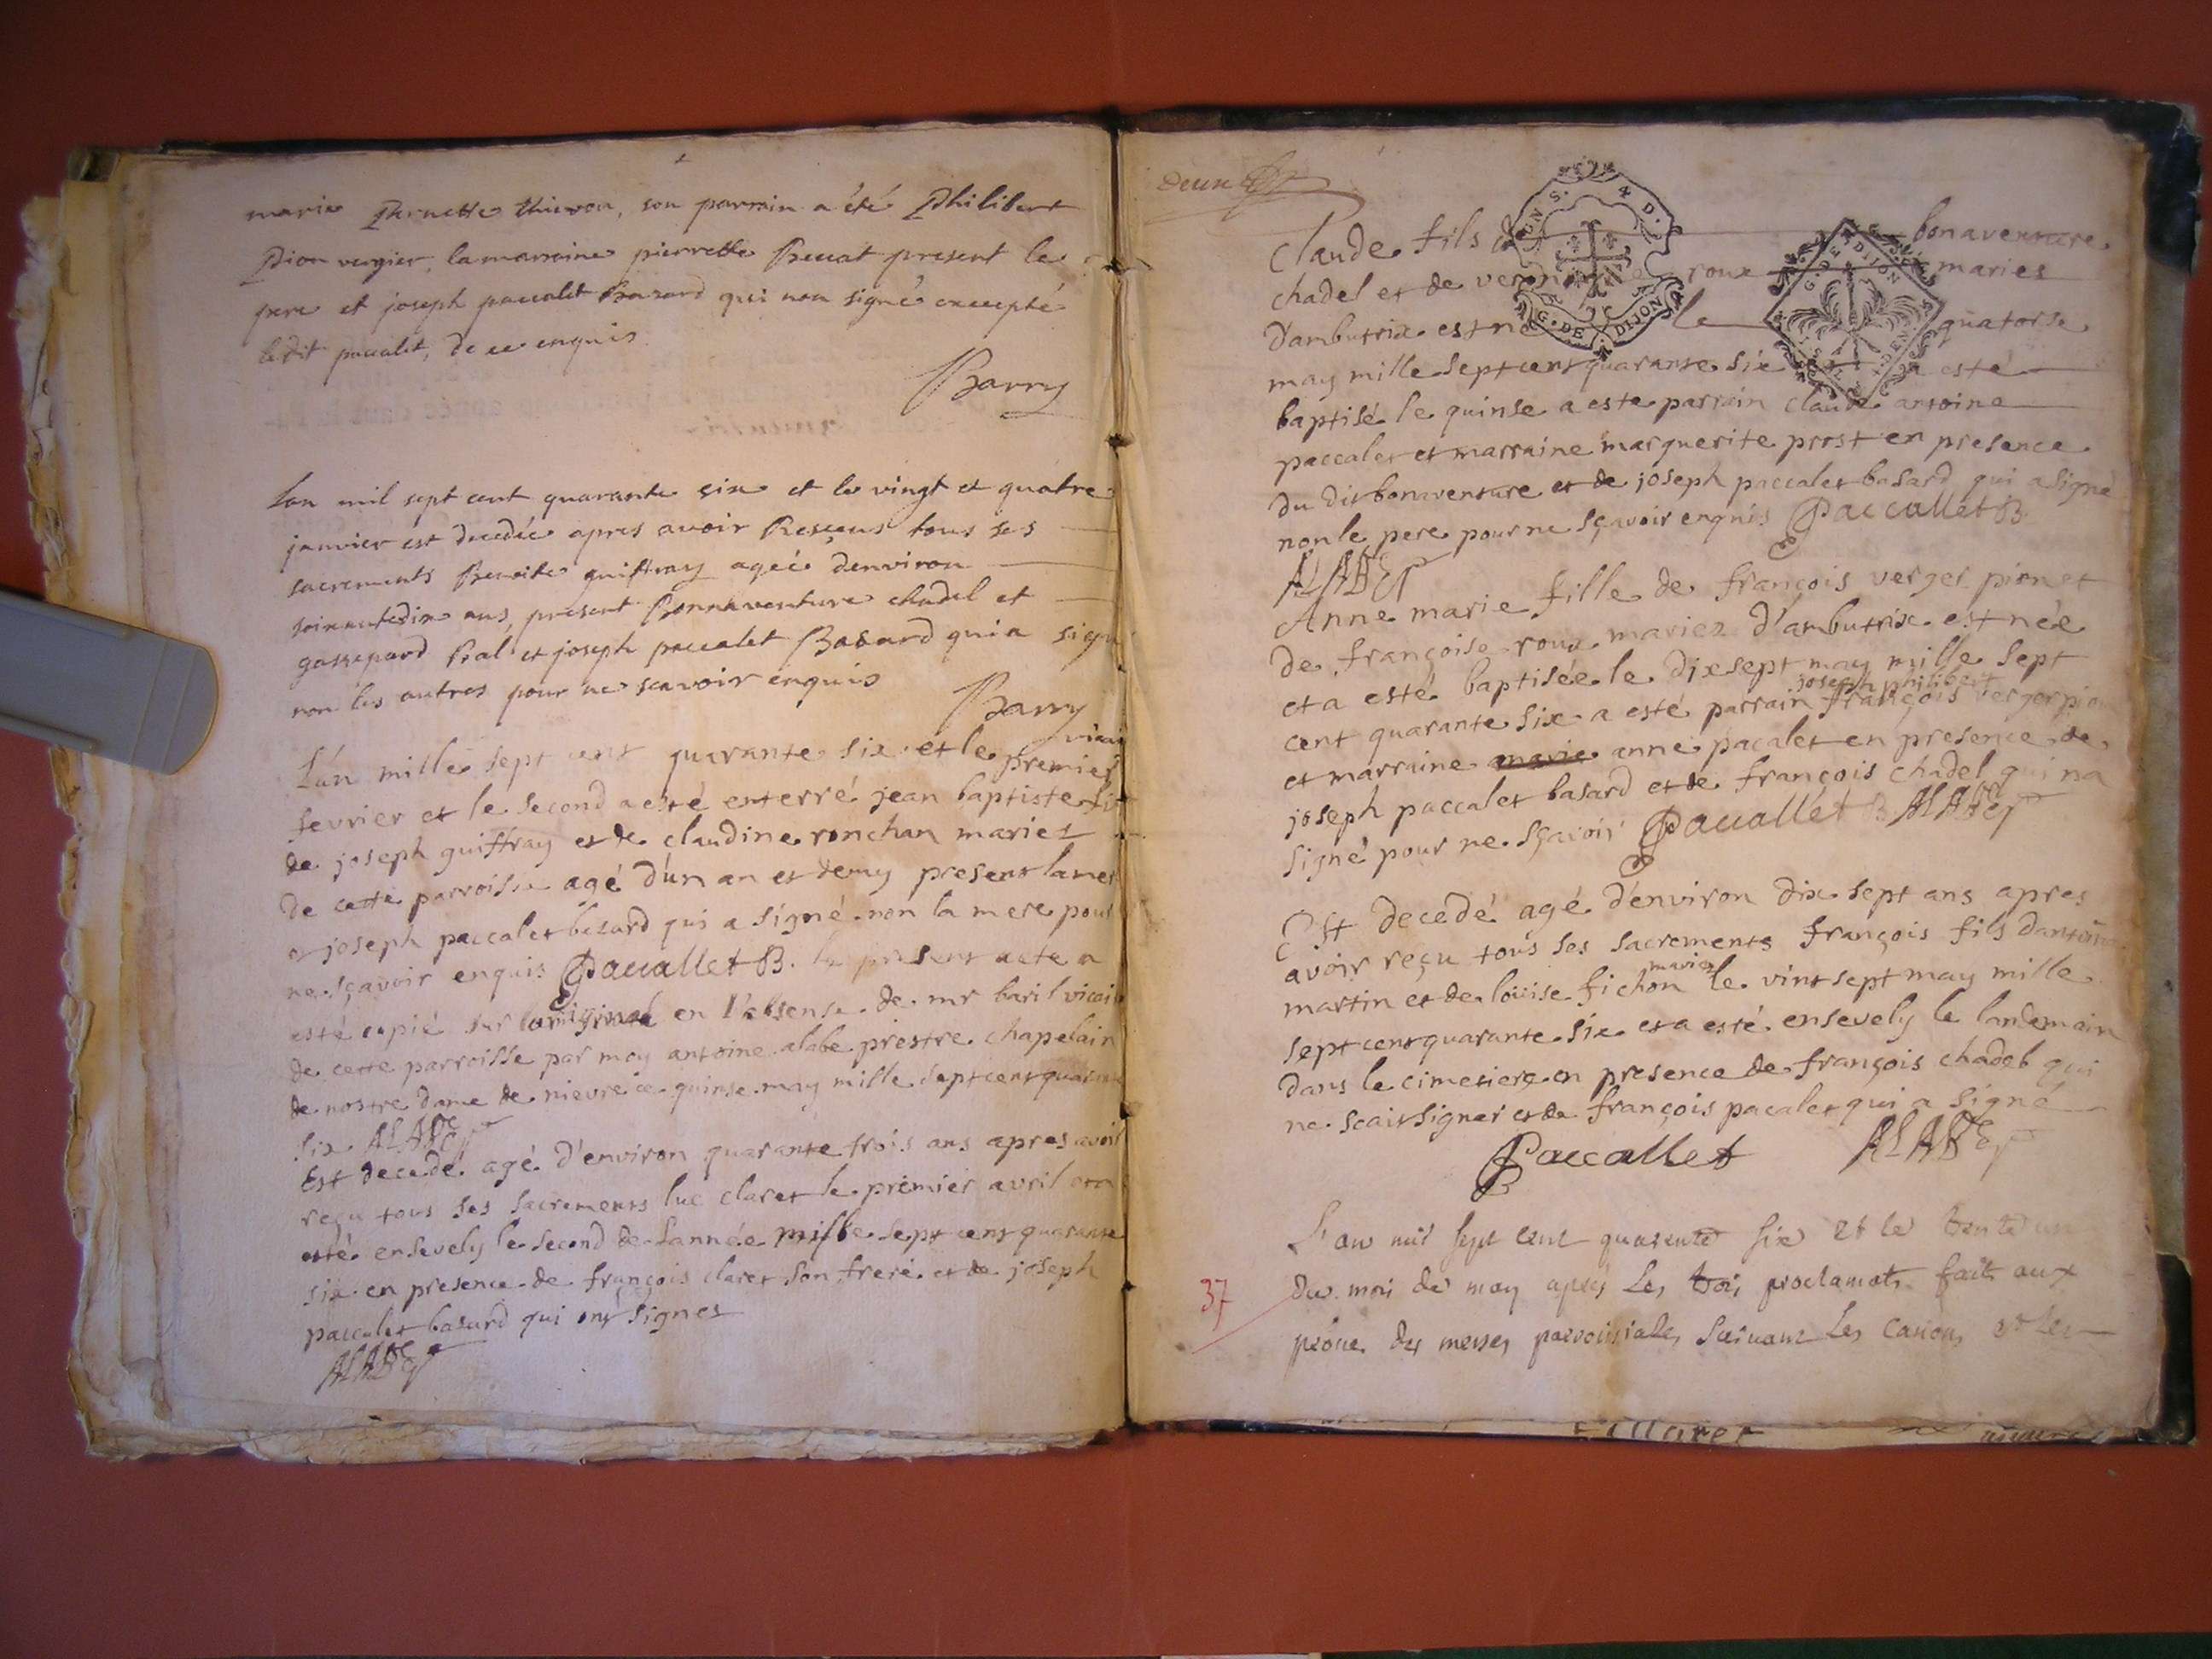 marie Pernette thievon, son parrain a été Philibert
Pion vergier, la marraine pierrette Precat present le
pere et joseph paccalet Bazard qui non signé excepté
ledit paccalet, de ce enquis
Barry
Lan mil sept cent quarante six et le vingt et quatre
janvier est decedée apres avoir Resçeus tous ses
sacrements Benoite guiffray agéé denviron
soixantedix ans, present Bonnaventure chadel et
gasspard Pral et joseph paccalet Basard qui a signé
non les autres pour ne scavoir enquis
Barry
vicai
L'an mille sept cent quarante six et le premier
fevrier et le second a esté enterré jean baptiste fis
de joseph guiffray et de claudine ronchan mariez
de cette parroisse agé d'un an et demy present la mere
et joseph paccalet basard qui a signé non la mere pour
ne sçavoir enquis Paccallet B. le present acte a
esté copié sur l'original en l'absense de mr baril vicaire
de cette parroisse par moy antoine alabe prestre chapelain
de nostre dame de nievre ce quinse may mille sept cent quarante
six ALABE
Est decedé agé d'environ quarante trois ans apres avoir
reçu tous ses sacrements luc claret le premier avril et a
esté ensevely le second de l'année mille sept cent quarante
six en presence de françois claret son frere et de joseph
paccalet basard qui ont signes
ALABE
deux
G. DE DIJON
G. DE DIJON
claude fils bonaventure
chadel et de roux maries
d'ambutrix est né le quatorse
may mille sept cent quarante six a esté
baptisé le quinse a este parrain claude antoine
paccalet et marraine marguerite prost en presence
du dit bonaventure et de joseph paccalet basard qui a signé
non le pere pour ne sçavoir enquis Paccallet B
ALABE
Anne marie fille de françois verger pion et
de françoise roux mariez d'ambutrix est née
et a esté baptisée le dixsept may mille sept
joseph philibert
cent quarante six a esté parrain françois verger pion
et marraine marie anne pacalet en presence de
joseph paccalet basard et de françois chadel qui na
signé pour ne sçavoir Paccallet B ALABE
Est decedé agé d'environ dix sept ans apres
avoir reçu tous ses sacrements françois fils dantoine
mariez
martin et de louise fichon le vint sept may mille
sept cent quarante six et a esté ensevely le landemain
dans le cimetiere en presence de françois chadel qui
ne scait signer et de françois pacalet qui a signé
Paccallet ALABE
L'an mil sept cent quarente six et le trente un
37
du moi de may apres les troi proclamats fait aux
prone des messes parroissiales suivant les canons et les